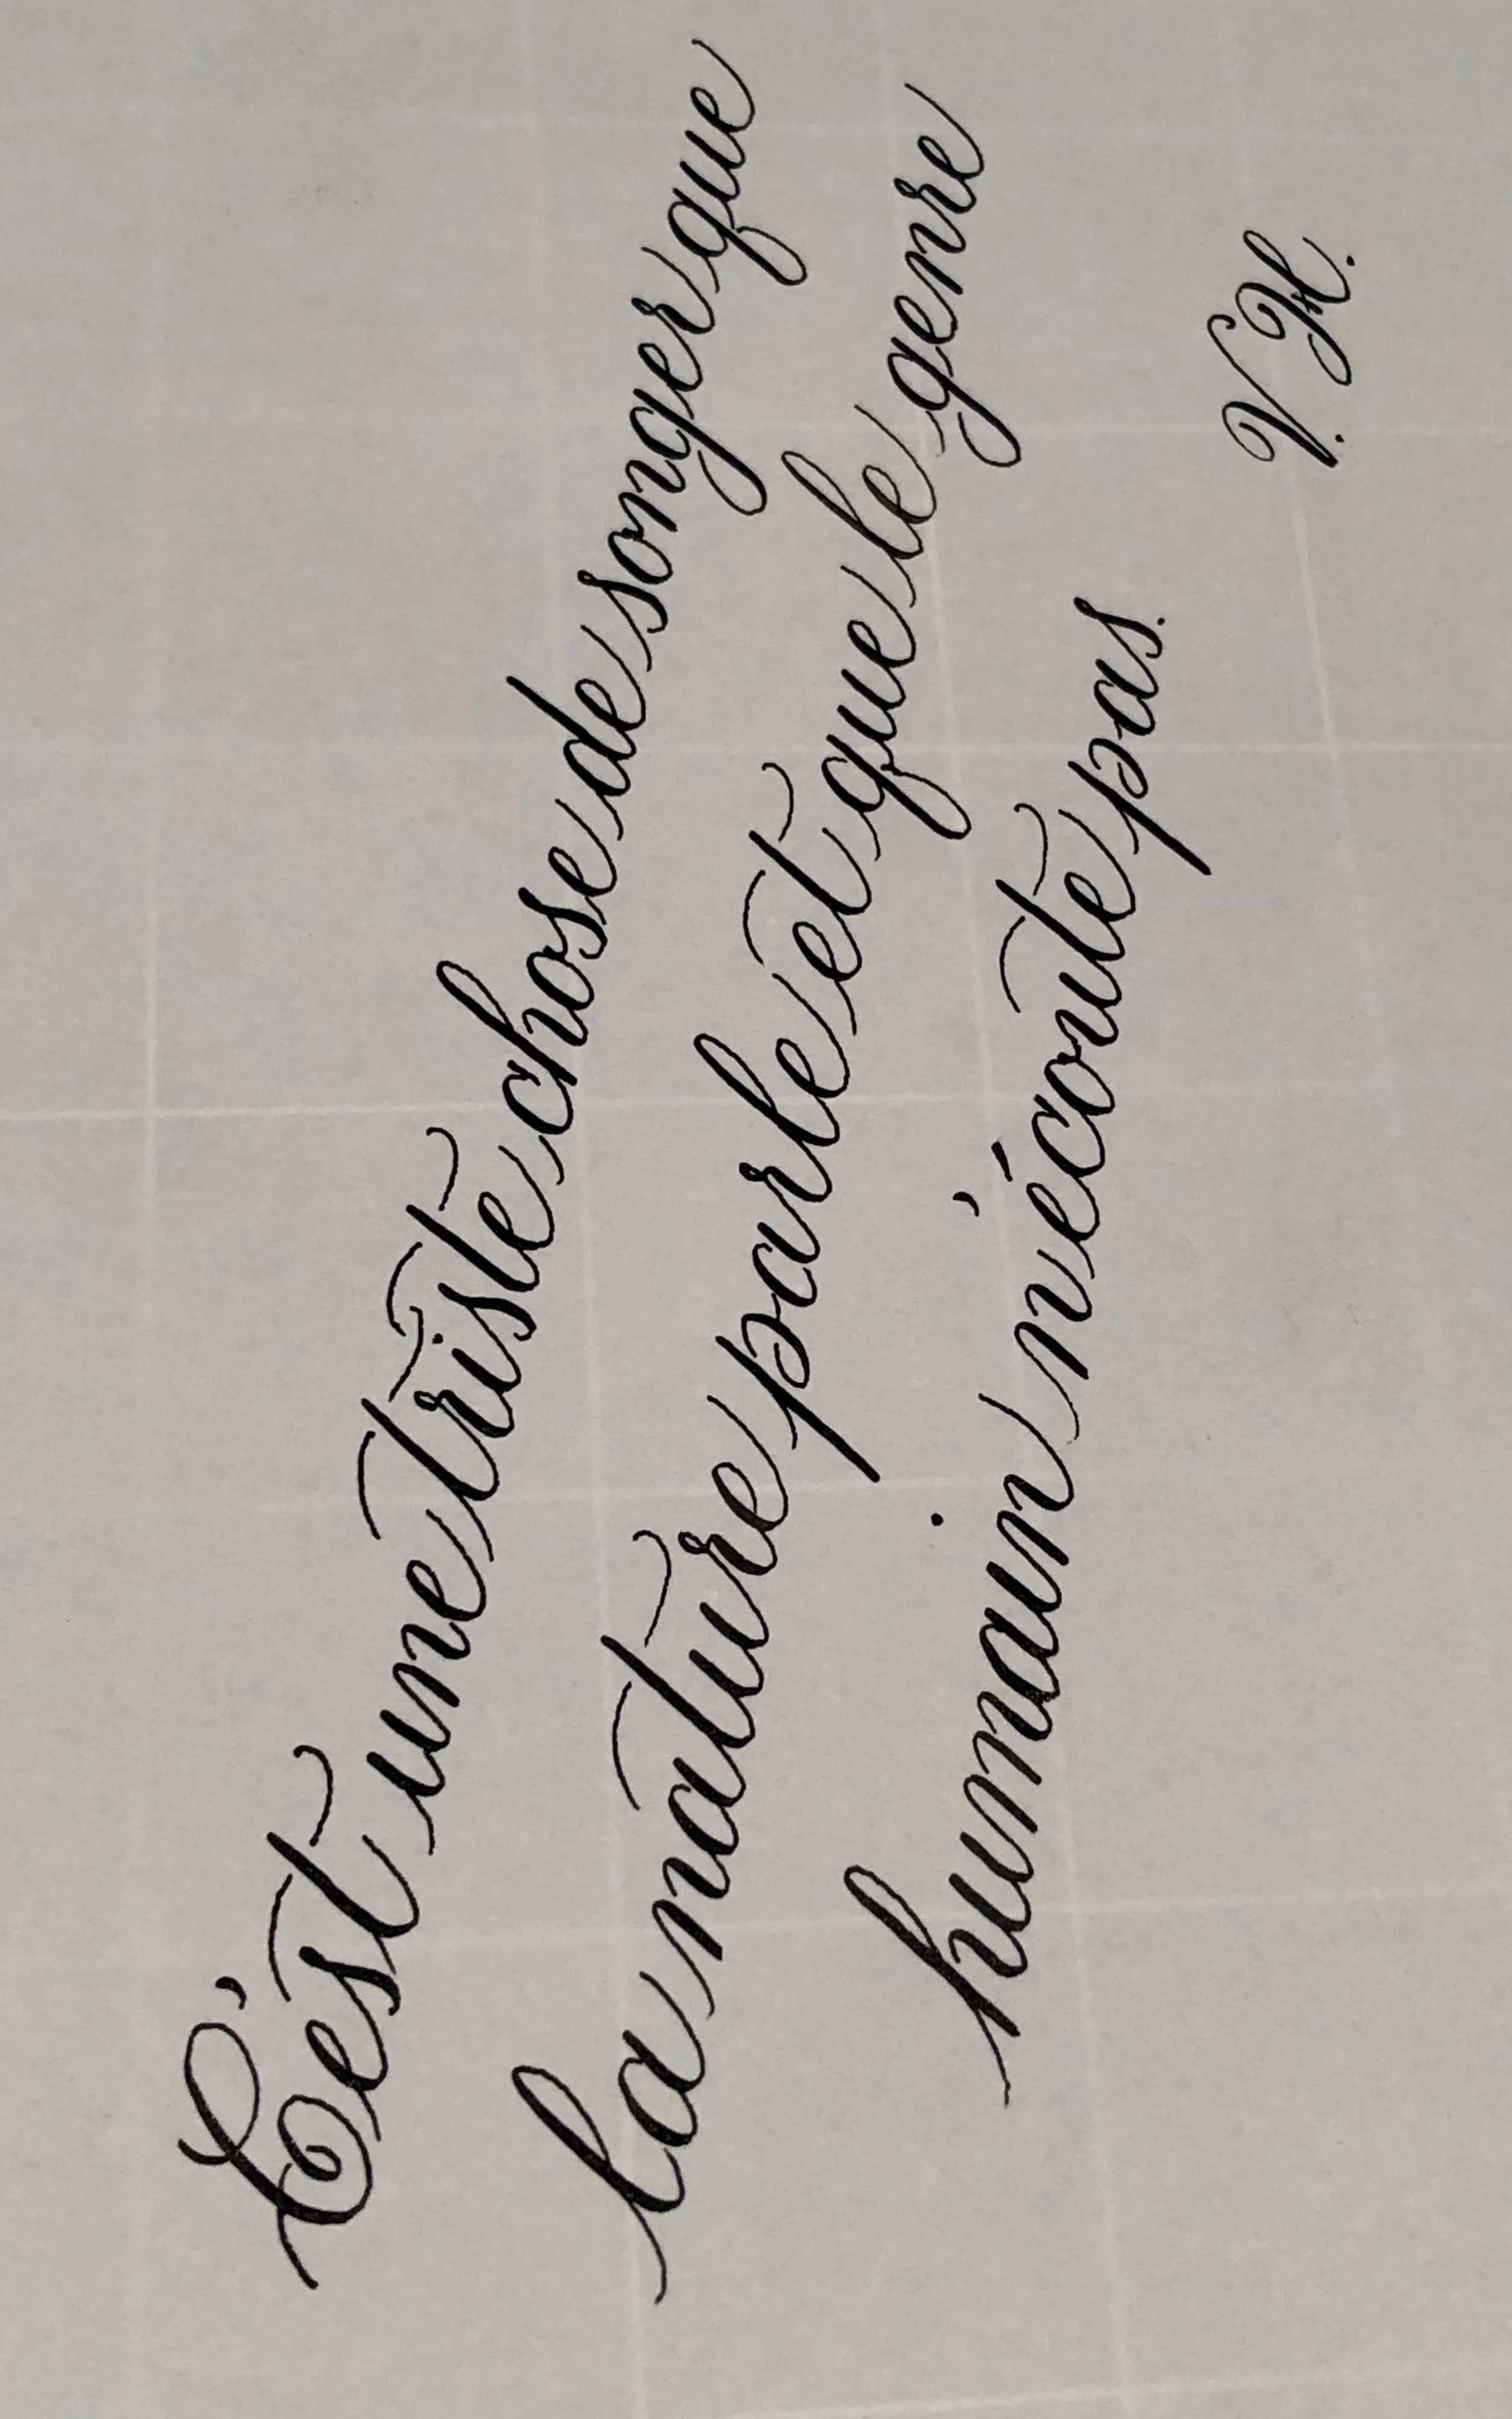 C'est une triste chose de songer que
la nature parle et que le genre
humain n'écoute pas.
V. H.